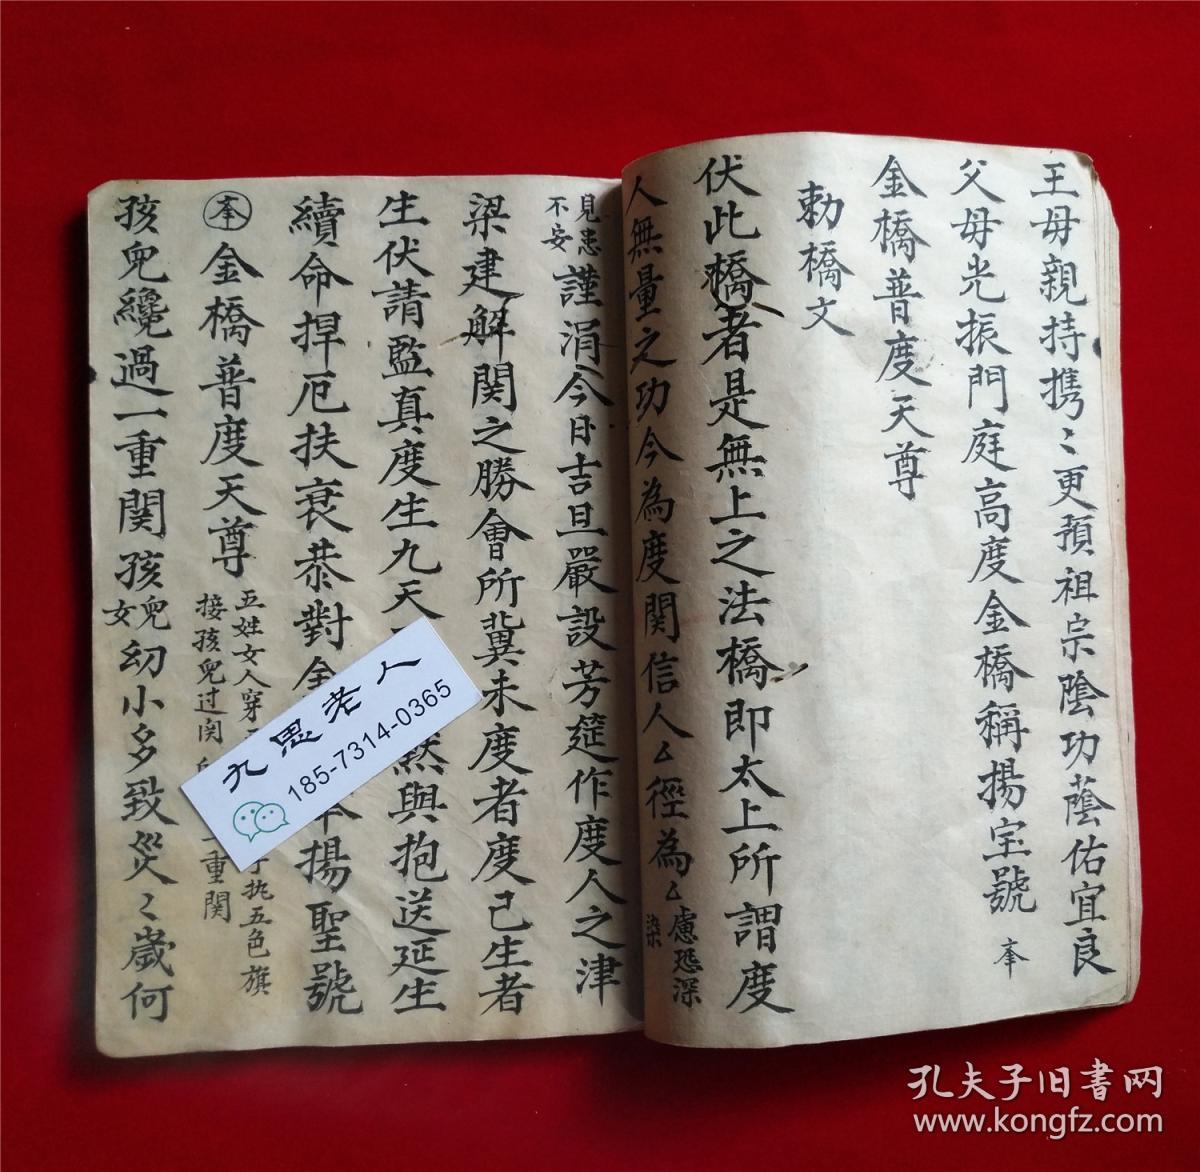 王母親持携〻更預祖宗陰功蔭佑宜良
父母光振門庭高度金橋稱揚宝號 奉
金橋普度天尊
勅橋文
伏此橋者是無上之法橋即太上所謂度
人無量之功今為度関信人厶徑為厶慮恐深
染
見患
不安
謹涓今日吉旦嚴設芳筵作度人之津
梁建解関之勝會所冀未度者度己生者
生伏請監真度生九天
黙與抱送延生
續命捍厄扶衰恭對金
揚聖號
奉 金橋普度天尊
五姓女人穿
手执五色旗
接孩兒过関
重関
孩兒纔過一重関孩兒女幼小多致災〻歲何
九思老人
185-7314-0365
孔夫子旧書网
www.kongfz.com